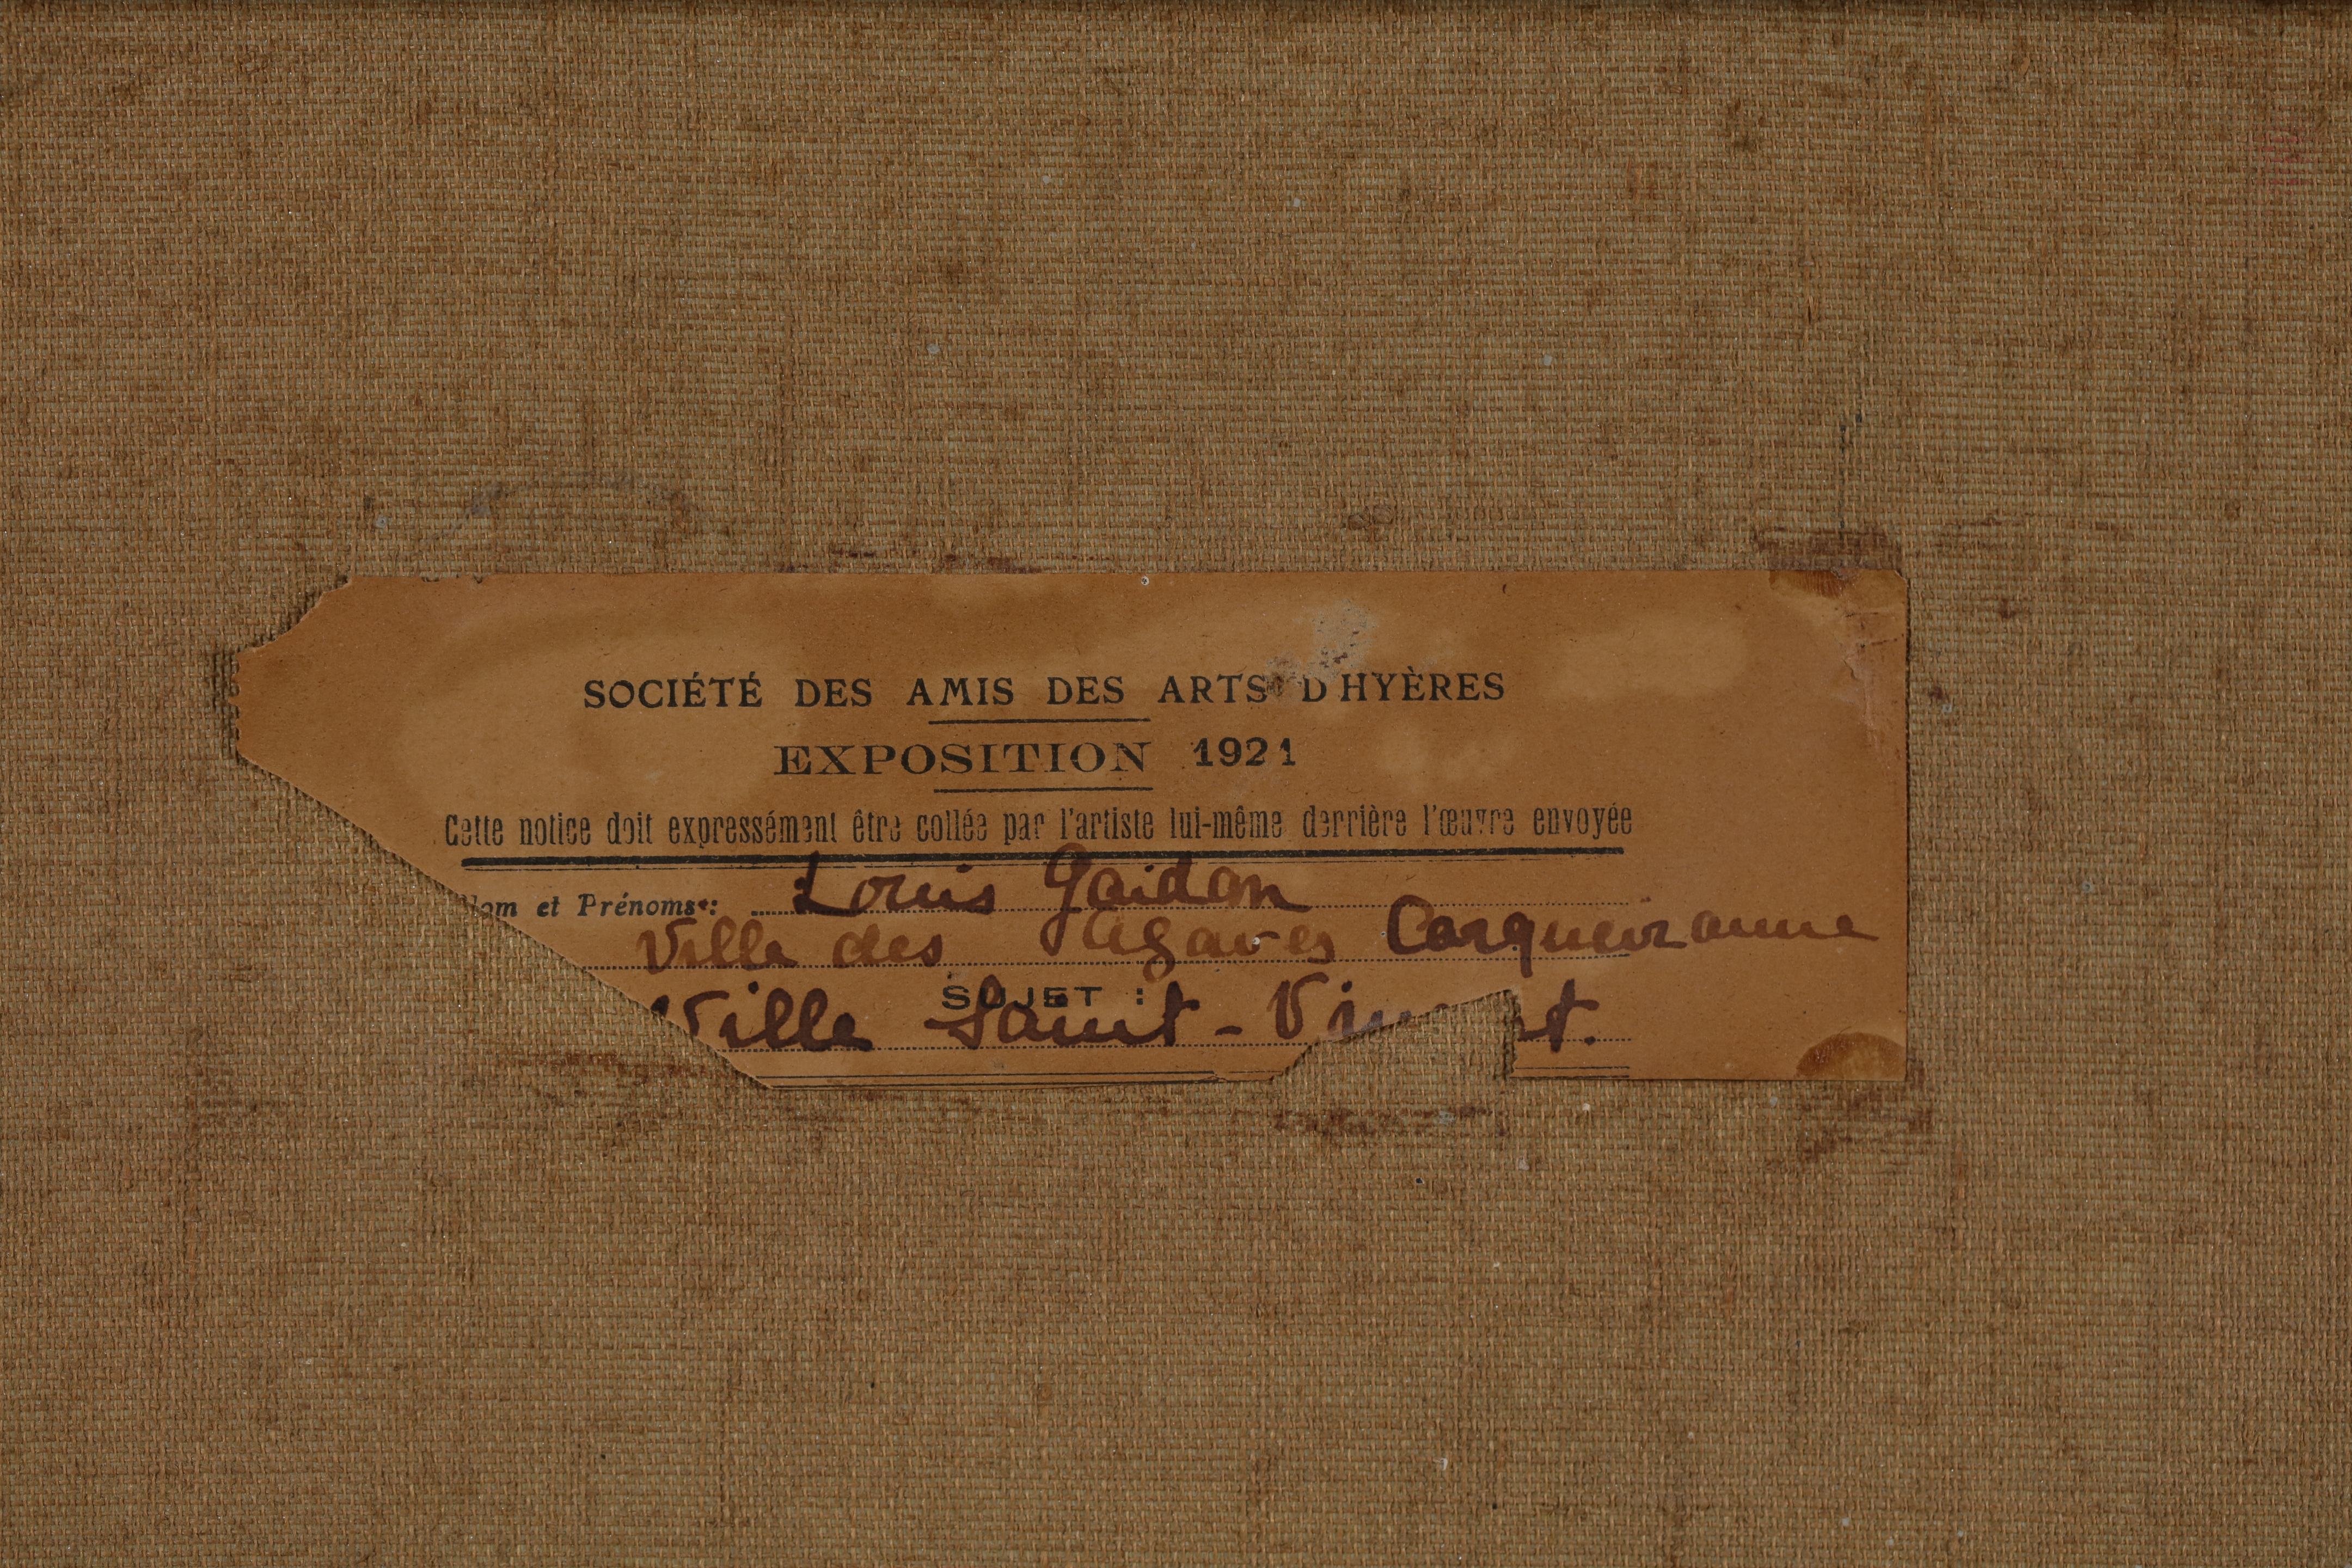 SOCIÉTÉ DES AMIS DES ARTS D'HYÈRES
EXPOSITION 1921
Cette notice doit expressément être collée par l'artiste lui-même derrière l'œuvre envoyée
Nom et Prénoms: Louis Gaidan
Villa des Agaves Carqueiranne
SUJET :
Villa Saint-Vincent.